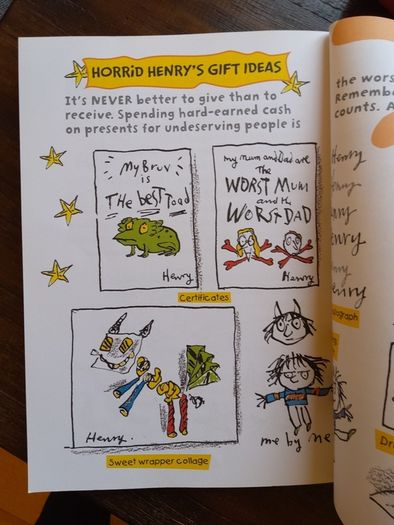 HORRiD HENRY'S GiFT iDEAS
It's NEVER better to give than to
receive. Spending hard-earned cash
on presents for undeserving people is
My Bruv
is
THe best Toad
Henry
my Mum and Dad are
The
WORST MUM
and the
WORST DAD
Henry
Certificates
Henry.
Sweet wrapper collage
me by me
the wors
Remembe
counts. A
Henry
enry
Henry
ograph
Dr